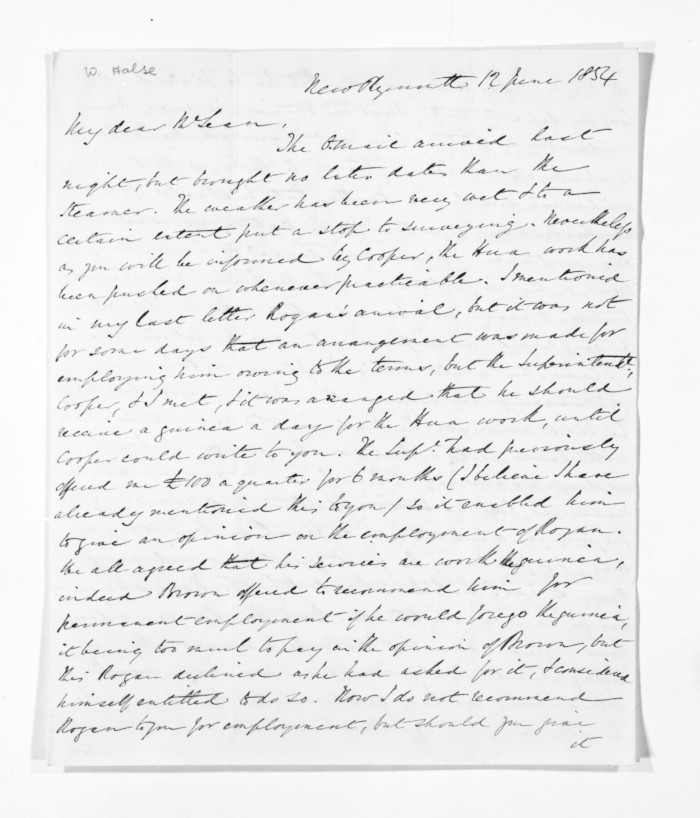 W. Halse
New Plymouth 12 June 1854
My dear McLean,
The Omail arrived last
night, but brought no later dates than the
steamer. The weather has been very wet & to a
certain extent put a stop to surveying. Nevertheless
as you will be informed by Cooper, the Hua work has
been pushed on whenever practicable. I mentioned
in my last letter Rogan's arrival, but it was not
for some days that an arrangement was made for
employing him owing to the terms, but the Superintendt.,
Cooper, & I met, & it was arranged that he should
receive a guinea a day for the Hua work, until
Cooper could write to you. The Supt. had previously
offered me £100 a quarter for 6 months (I believe I have
already mentioned this to you) so it enabled him
to give an opinion on the employment of Rogan.
We all agreed that his services are worth the guinea,
indeed Brown offered to recommend him for
permanent employment if he would forego the guinea,
it being too much to pay in the opinion of Brown, but
this Rogan declined as he had asked for it, & considered
himself entitled to do so. Now I do not recommend
Rogan to you for employment, but should you give
it